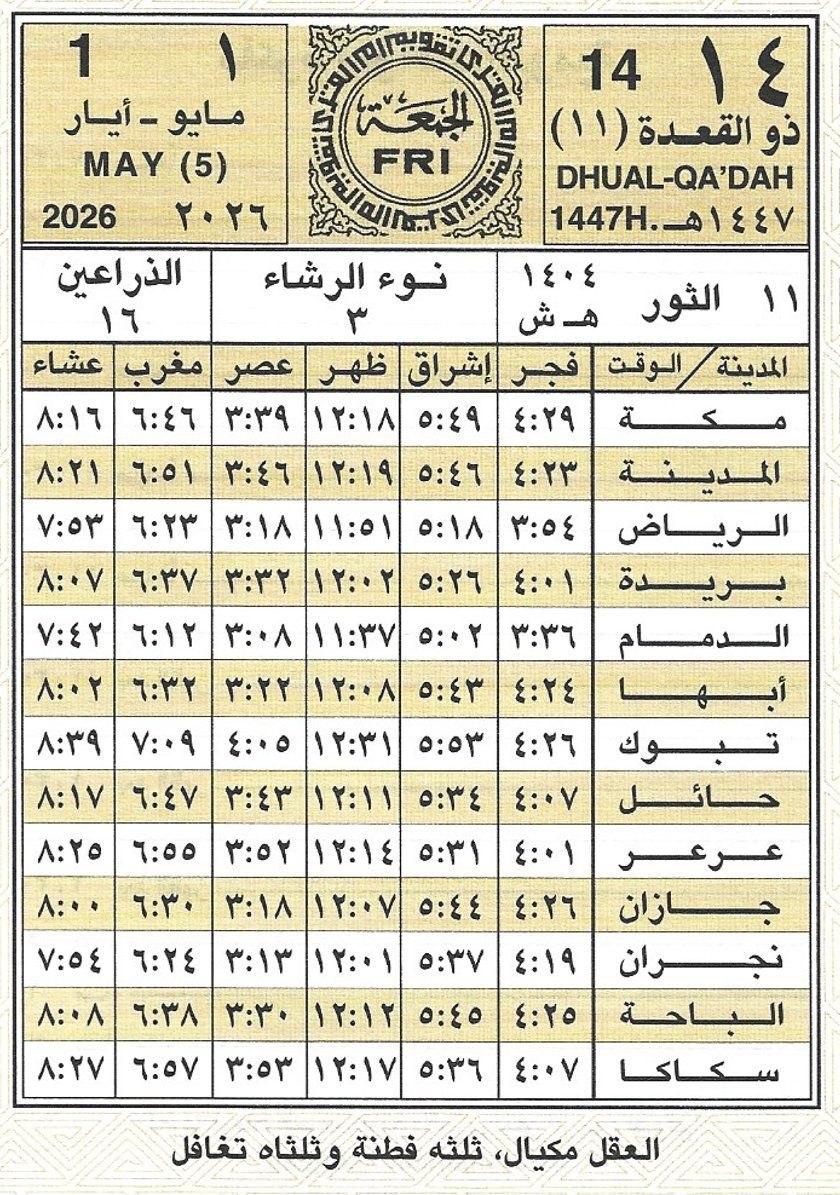 ١٤ 14
ذو القعدة (١١)
DHUAL-QA'DAH
1447H. ١٤٤٧هـ
الجمعة
FRI
١ 1
مايو - أيار
MAY (5)
2026 ٢٠٢٦
١١ الثور ١٤٠٤ هـ ش
نوء الرشاء ٣
الذراعين ١٦
المدينة / الوقت فجر إشراق ظهر عصر مغرب عشاء
مكة ٤:٢٩ ٥:٤٩ ١٢:١٨ ٣:٣٩ ٦:٤٦ ٨:١٦
المدينة ٤:٢٣ ٥:٤٦ ١٢:١٩ ٣:٤٦ ٦:٥١ ٨:٢١
الرياض ٣:٥٤ ٥:١٨ ١١:٥١ ٣:١٨ ٦:٢٣ ٧:٥٣
بريدة ٤:٠١ ٥:٢٦ ١٢:٠٢ ٣:٣٢ ٦:٣٧ ٨:٠٧
الدمام ٣:٣٦ ٥:٠٢ ١١:٣٧ ٣:٠٨ ٦:١٢ ٧:٤٢
أبها ٤:٢٤ ٥:٤٣ ١٢:٠٨ ٣:٢٢ ٦:٣٢ ٨:٠٢
تبوك ٤:٢٦ ٥:٥٣ ١٢:٣١ ٤:٠٥ ٧:٠٩ ٨:٣٩
حائل ٤:٠٧ ٥:٣٤ ١٢:١١ ٣:٤٣ ٦:٤٧ ٨:١٧
عرعر ٤:٠١ ٥:٣١ ١٢:١٤ ٣:٥٢ ٦:٥٥ ٨:٢٥
جازان ٤:٢٦ ٥:٤٤ ١٢:٠٧ ٣:١٨ ٦:٣٠ ٨:٠٠
نجران ٤:١٩ ٥:٣٧ ١٢:٠١ ٣:١٣ ٦:٢٤ ٧:٥٤
الباحة ٤:٢٥ ٥:٤٥ ١٢:١٢ ٣:٣٠ ٦:٣٨ ٨:٠٨
سكاكا ٤:٠٧ ٥:٣٦ ١٢:١٧ ٣:٥٣ ٦:٥٧ ٨:٢٧
العقل مكيال، ثلثه فطنة وثلثاه تغافل